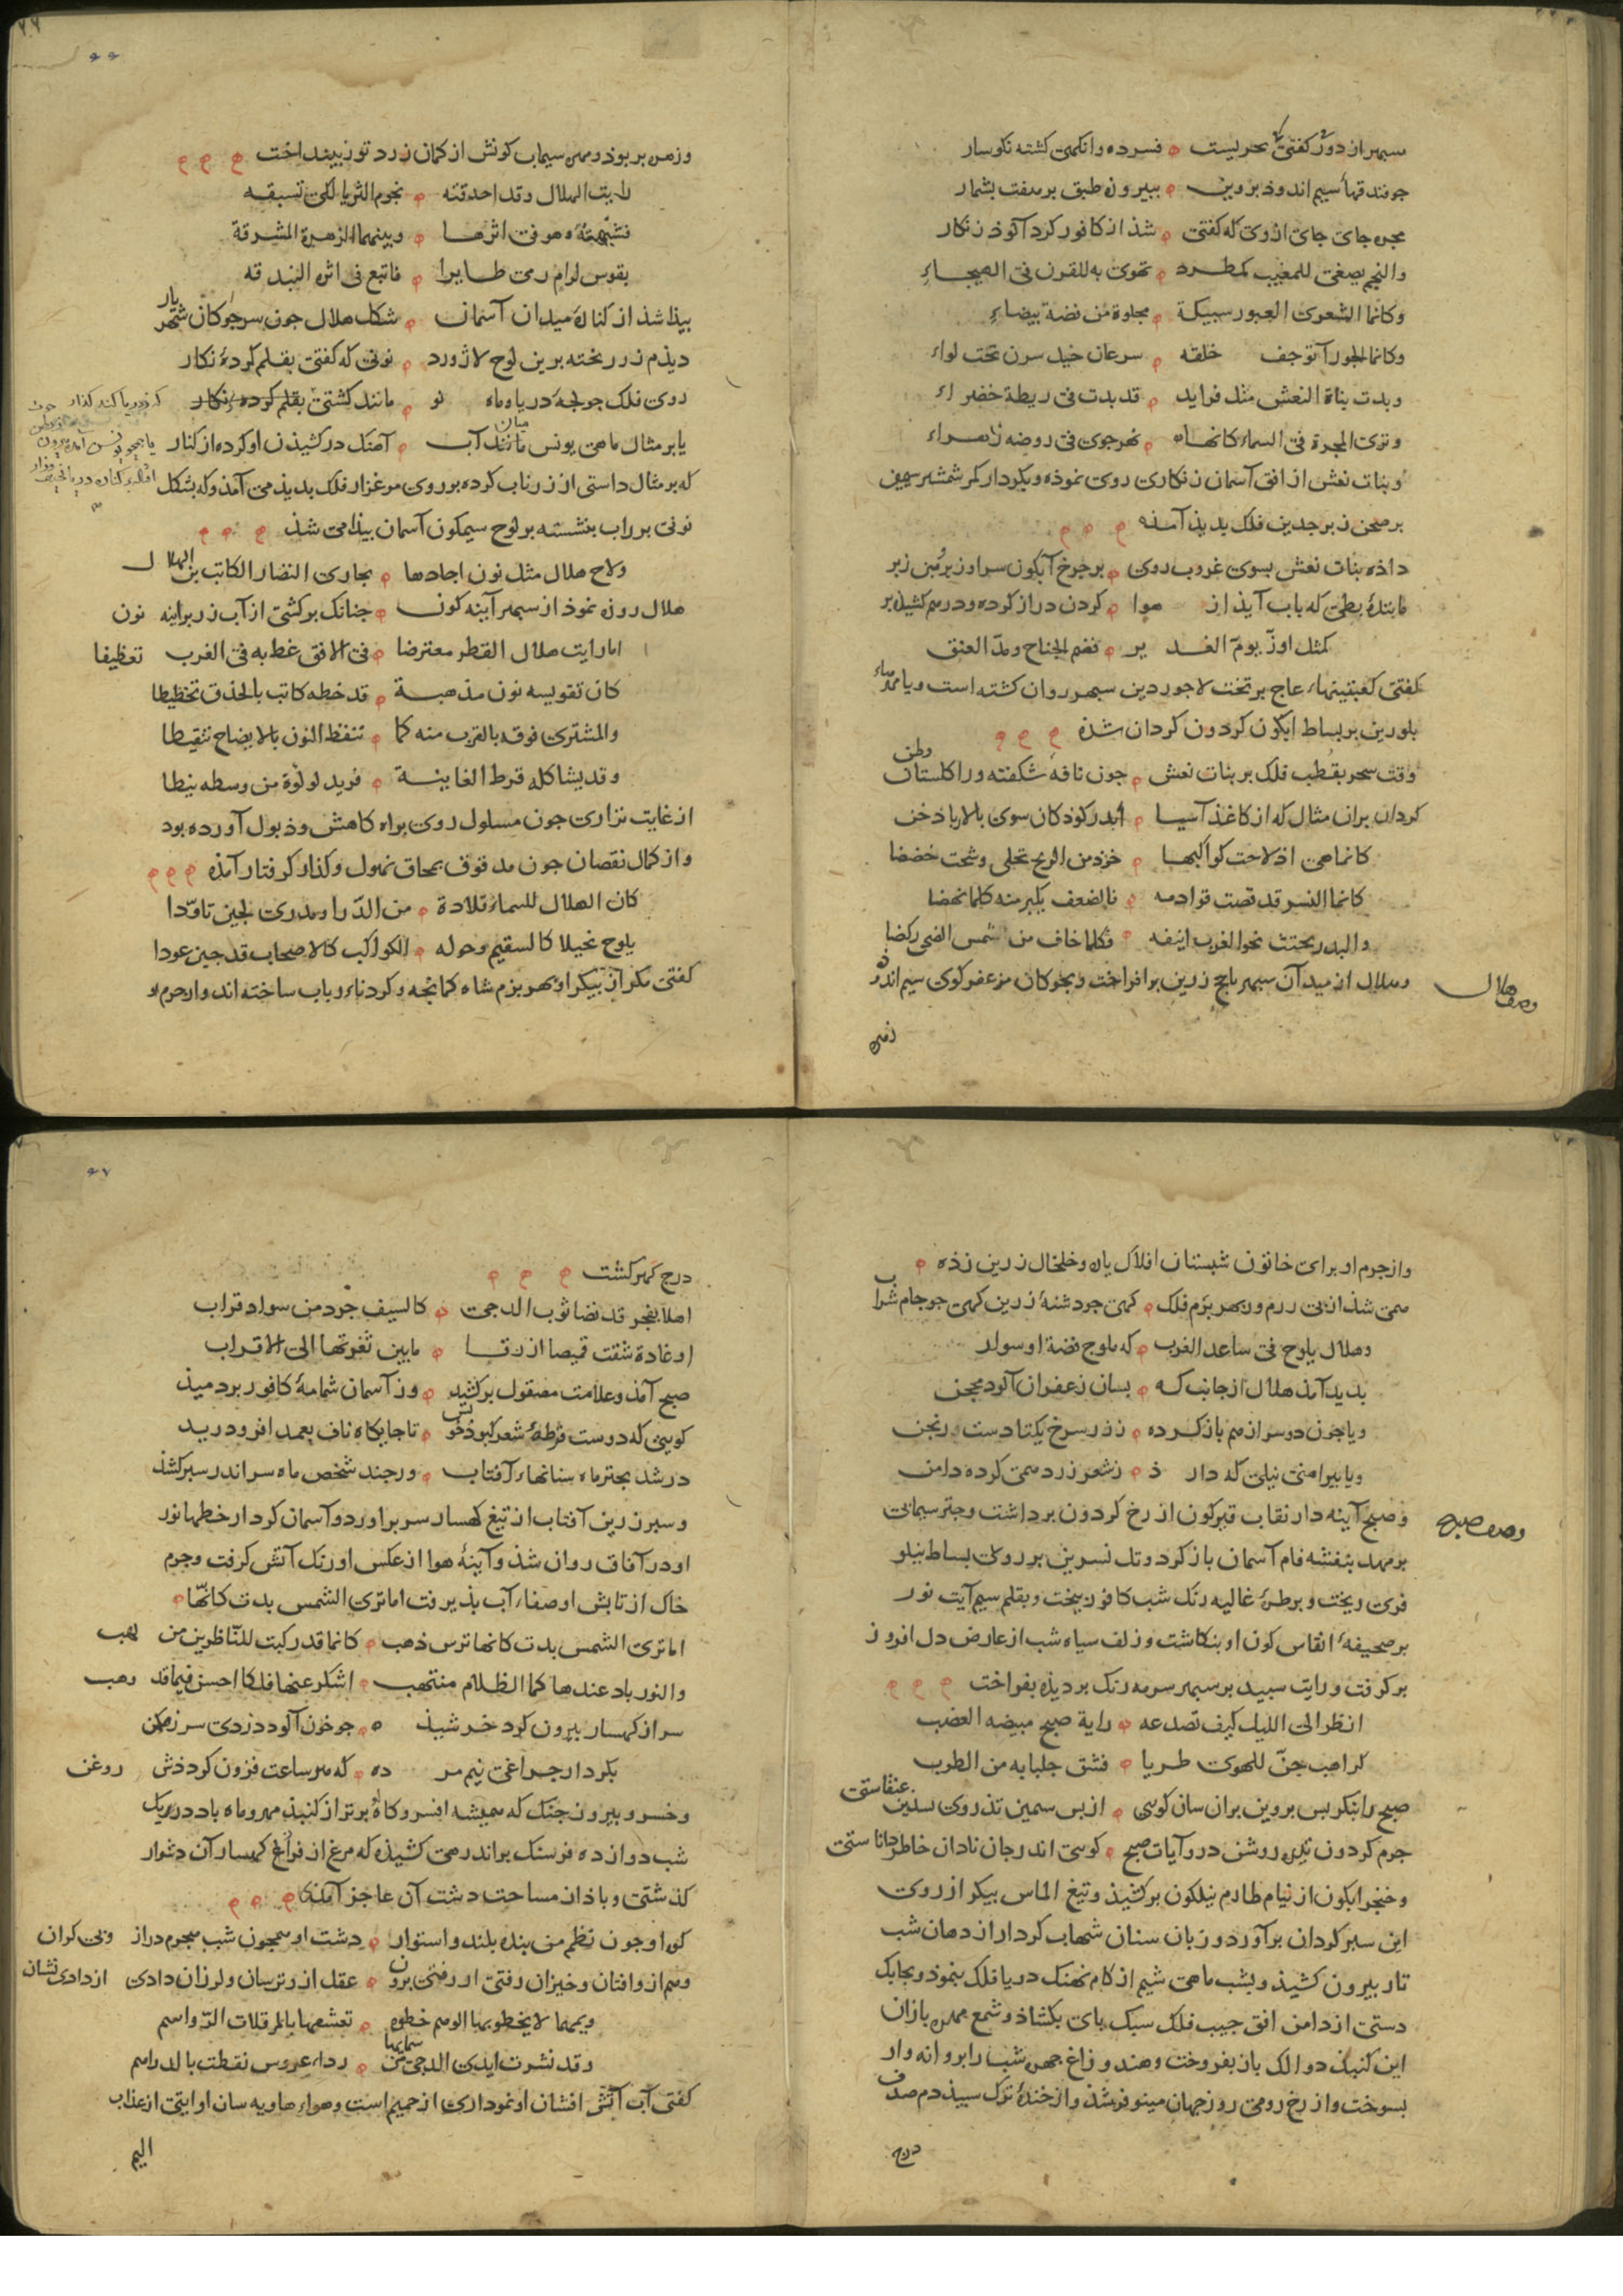 سپهر از دور کفتی بحریست فسرده وانکهی کشته نکوسار
جو بند قها سیم اندوذ بروین ببیرون طبق بر هفت بشمار
مجره جای جای از وی که کفتی شذ از کافور کرد آلوذ زنکار
والنجم یصغی للمغیب کمطرد تهوی به للقرن فی الهیجاء
وکانما الشعری العبور سبیکة مجلوة من فضة بیضاء
وکانما الجوزآ توجف خلفه سرعان خیل سرن تحت لواء
وبدت بناة النعش مثل فراید قد بدت فی ریطة خضراء
وتری المجرة فی السماء کانها نهر جری فی روضه زهراء
وبنات نعش از افق آسمان زنکاری روی نموذه وبکردار کمر شمشیر سیمین
بر صحن زبرجدین فلک بدیذ آمذه
داذه بنات نعش بسوی غروب روی بر جرخ آبکون سر او زیر بن زبر
مانندهٔ بطی که باب آیذ از هوا کردن دراز کرده ودرهم کشیذه بر
کمثل اوز یوم الغدیر فضم الجناح ومد العنق
کفتی کعبتینهاء عاج بر تخت لاجوردین سبهر روان کشته است ویا مهرهاء
بلورین بر بساط ابکون کردون کردان شذه
وقت سحر بقطب فلک بر بنات نعش جون نافه شکفته ورا کلستان وطن
کردان بران مثال که از کاغذ آسیا اندر کوذکان سوی بالا بادخن
کانما هی اذ لاحت کواکبها خود من الریح تجلی وشحت خضضا
کانما النسر قد قصت قوادمه فالضعف یکبر منه کلما نهضا
والبدر یجتث نحو الغرب اینفه فکلما خاف من شمس الضحی رکضا
وهلال از میدآن سبهر تاج زرین برافراخت وبجوکان مزعفر کوی سیم اندوذ
وصف هلال
زهره
وزهره بربوذ ومهره سیماب کونش از کمان زرد توز بینداخت
رایت الهلال وقد احدقته نجوم الثریا لکی تسبقه
فشبهته وهو فی اثرها وبینهما الزهرة المشرقة
بقوس لرام رمی طایرا فاتبع فی اثره البندقه
بیذا شذ از کنارهٔ میدان آسمان شکل هلال جون سر جوکان شهریار
دیذم ز زر بخته برین لوح لاژورد نونی که کفتی بقلم کردهٔ نکار
روی فلک جو لجهٔ دریا وماه نو مانند کشتی
یا بر مثال ماهی یونس میان آب آهنک در کشیذن او کرده از کنار
که بر مثال داستی از زر ناب کرده بر روی مرغزار فلک بدیذ می آمذ وکه بشکل
نونی بر راب بنشسته بر لوح سیمکون آسمان بیذا می شذ
ولاح هلال مثل نون اجادها بجاری النضار الکاتب بن الهلال
هلال روزه نموذ از سبهر آینه کون جنانک برکشی از آب زر براینه نون
اما رایت هلال القطر معترضا فی الافق غط به فی الغرب تعظیفا
کان تقویسه نون مذهبة قد خطه کاتب بالحذق تخطیطا
والمشتری فوقه بالقرب منه کما تنقط النون بالایضاح تنقیطا
وقد یشاکله قرط الغانیة فرید لولوة من وسطه نیطا
از غایت نزاری جون مسلول روی براه کاهش وذبول آورده بود
واز کمال نقصان جون مدقوق بمحاق نحول وکداز کرفتار آمذه
کان الهلال للسماء قلادة من الدر او مدری لجین تاودا
یلوح نحیلا کالسقیم وحوله الکواکب کالاصحاب قد جین عودا
کفتی مکر از بیکر او بهر بزم شاه کمانجه وکردناء رباب ساخته اند واز جرم او
واز جرم او برای خاتون شبستان افلاک یاره وخلخال زرین زذه
همی شذ از بی رزم وبهر بزم فلک کهی جو دشنهٔ زرین کهی جو جام شراب
وهلال یلوح فی ساعد الغرب کدملوج فضة او سوار
بدید آمذ هلال از جانب که بسان زعفران آلوده محجن
ویا جون دو سر از هم باز کرده ز زر سرخ یکتا دست ورنجن
ویا بیراهنی نیلی که دارذ ز شعر زرد همی کرده دامن
وصف صبح
وصبح آینه دار نقاب قیرکون از رخ کردون برداشت وجتر سیمابی
بر مهد بنفشه فام آسمان باز کرد وتل نسرین بر روی بساط نیلو
فری ریخت وبر طرهٔ غالیه رنک شب کافور بیخت وبقلم سیم آیت نور
بر صحیفهٔ انقاس کون او بنکاشت وزلف سیاه شب از عارض دل افروز
برکرفت ورایت سبید بر سبهر سرمه رنک بر دیذه بفراخت
انظر الی اللیل کیف تصدعه رایة صبح مبیضه العضب
کراهب جن للهوی طربا فشق جلبابه من الطرب
صبح را بنکر بس بروین بران سان کوی از بس سمین تذروی سذین عنقاستی
جرم کردون تیره روشن در روآیات صبح کویی اندر جان نادان خاطر داناستی
وخنجر ابکون از نیام طارم نیلکون برکشیذ وتیغ الماس بیکر از روی
این سبر کردان برآورد وزبان سنان شهاب کردار از دهان شب
تار بیرون کشیذ وبشب ماهی شیم از کام نهنک دریا فلک بنموذ وبجابک
دستی از دامن افق جیب فلک سبک بای بکشاذ وشمع مهره بازان
این کنبذ دوالک باز بفروخت وهندو زاغ جهره شب را بروانه وار
بسوخت واز رخ رومی روز جهان مینو فر شذ واز خندهٔ ترک سبیذ دم صدف
درج
درج کهر کشت
اهلا بفجر قد نضا ثوب الدجی کالسیف جرد من سواد قراب
او غادة شقت قمیصا ازرقا مابین ثغرتها الی الاقراب
صبح آمذ وعلامت مصقول برکشید وز آسمان شمامهٔ کافور بردمیذ
کویی که دوست قرطهٔ شعر کبوذ خویش تا جایکاه ناف بعمد افرو درید
در شد بجتر ماه سنانهاء آفتاب ورجند شخص ماه سر اندر سبر کشذ
وسبر زرین آفتاب از تیغ کهسار سر براورد وآسمان کردار خطها نور
او در آفاق روان شذ وآینهٔ هوا از عکس او رنک آتش کرفت وجرم
خاک از تابش او صفاء آب بذیرفت اما تری الشمس بدت کانها
اما تری الشمس بدت کانها ترس ذهب کانما قد رکبت للناظرین من لهب
والنور باد عندها کما الظلام منتهب اشکر عنها فلکا احسن فیما قد وهب
سر از کهسار بیرون کرد خرشیذ جو خون آلوده دزدی سر ز مکن
بکردار جراغی نیم مرده که هر ساعت فزون کرددش روغن
وخسرو بیرون جنک که همیشه افسر وکاهٔ برتر از کنبذ مهر وماه باد در یک
شب دوازده فرسنک براند رهی کشیذه که مرغ از فراغ کهسار آن دشوار
کذشتی وباذ از مساحت دشت آن عاجز آمذی
کوه او جون نظم من بنده بلند واستوار دشت او همجون شب مهجوم دراز وبی کران
وهم از وافتان وخیزان رفتی ار رفتی برون عقل ازو ترسان ولرزان دادی ار دادی نشان
ویهما لا یخطو بها الوهم خطوه تعسفها بالمرقلات الرواسم
وقد نشرت ایدی الدجی من سمایها رداء عروس نقطت بالدراهم
کفتی آب آتش افشان او نموداری از حمیم است وهواء هاویه سان او ایتی از عذاب
الیم